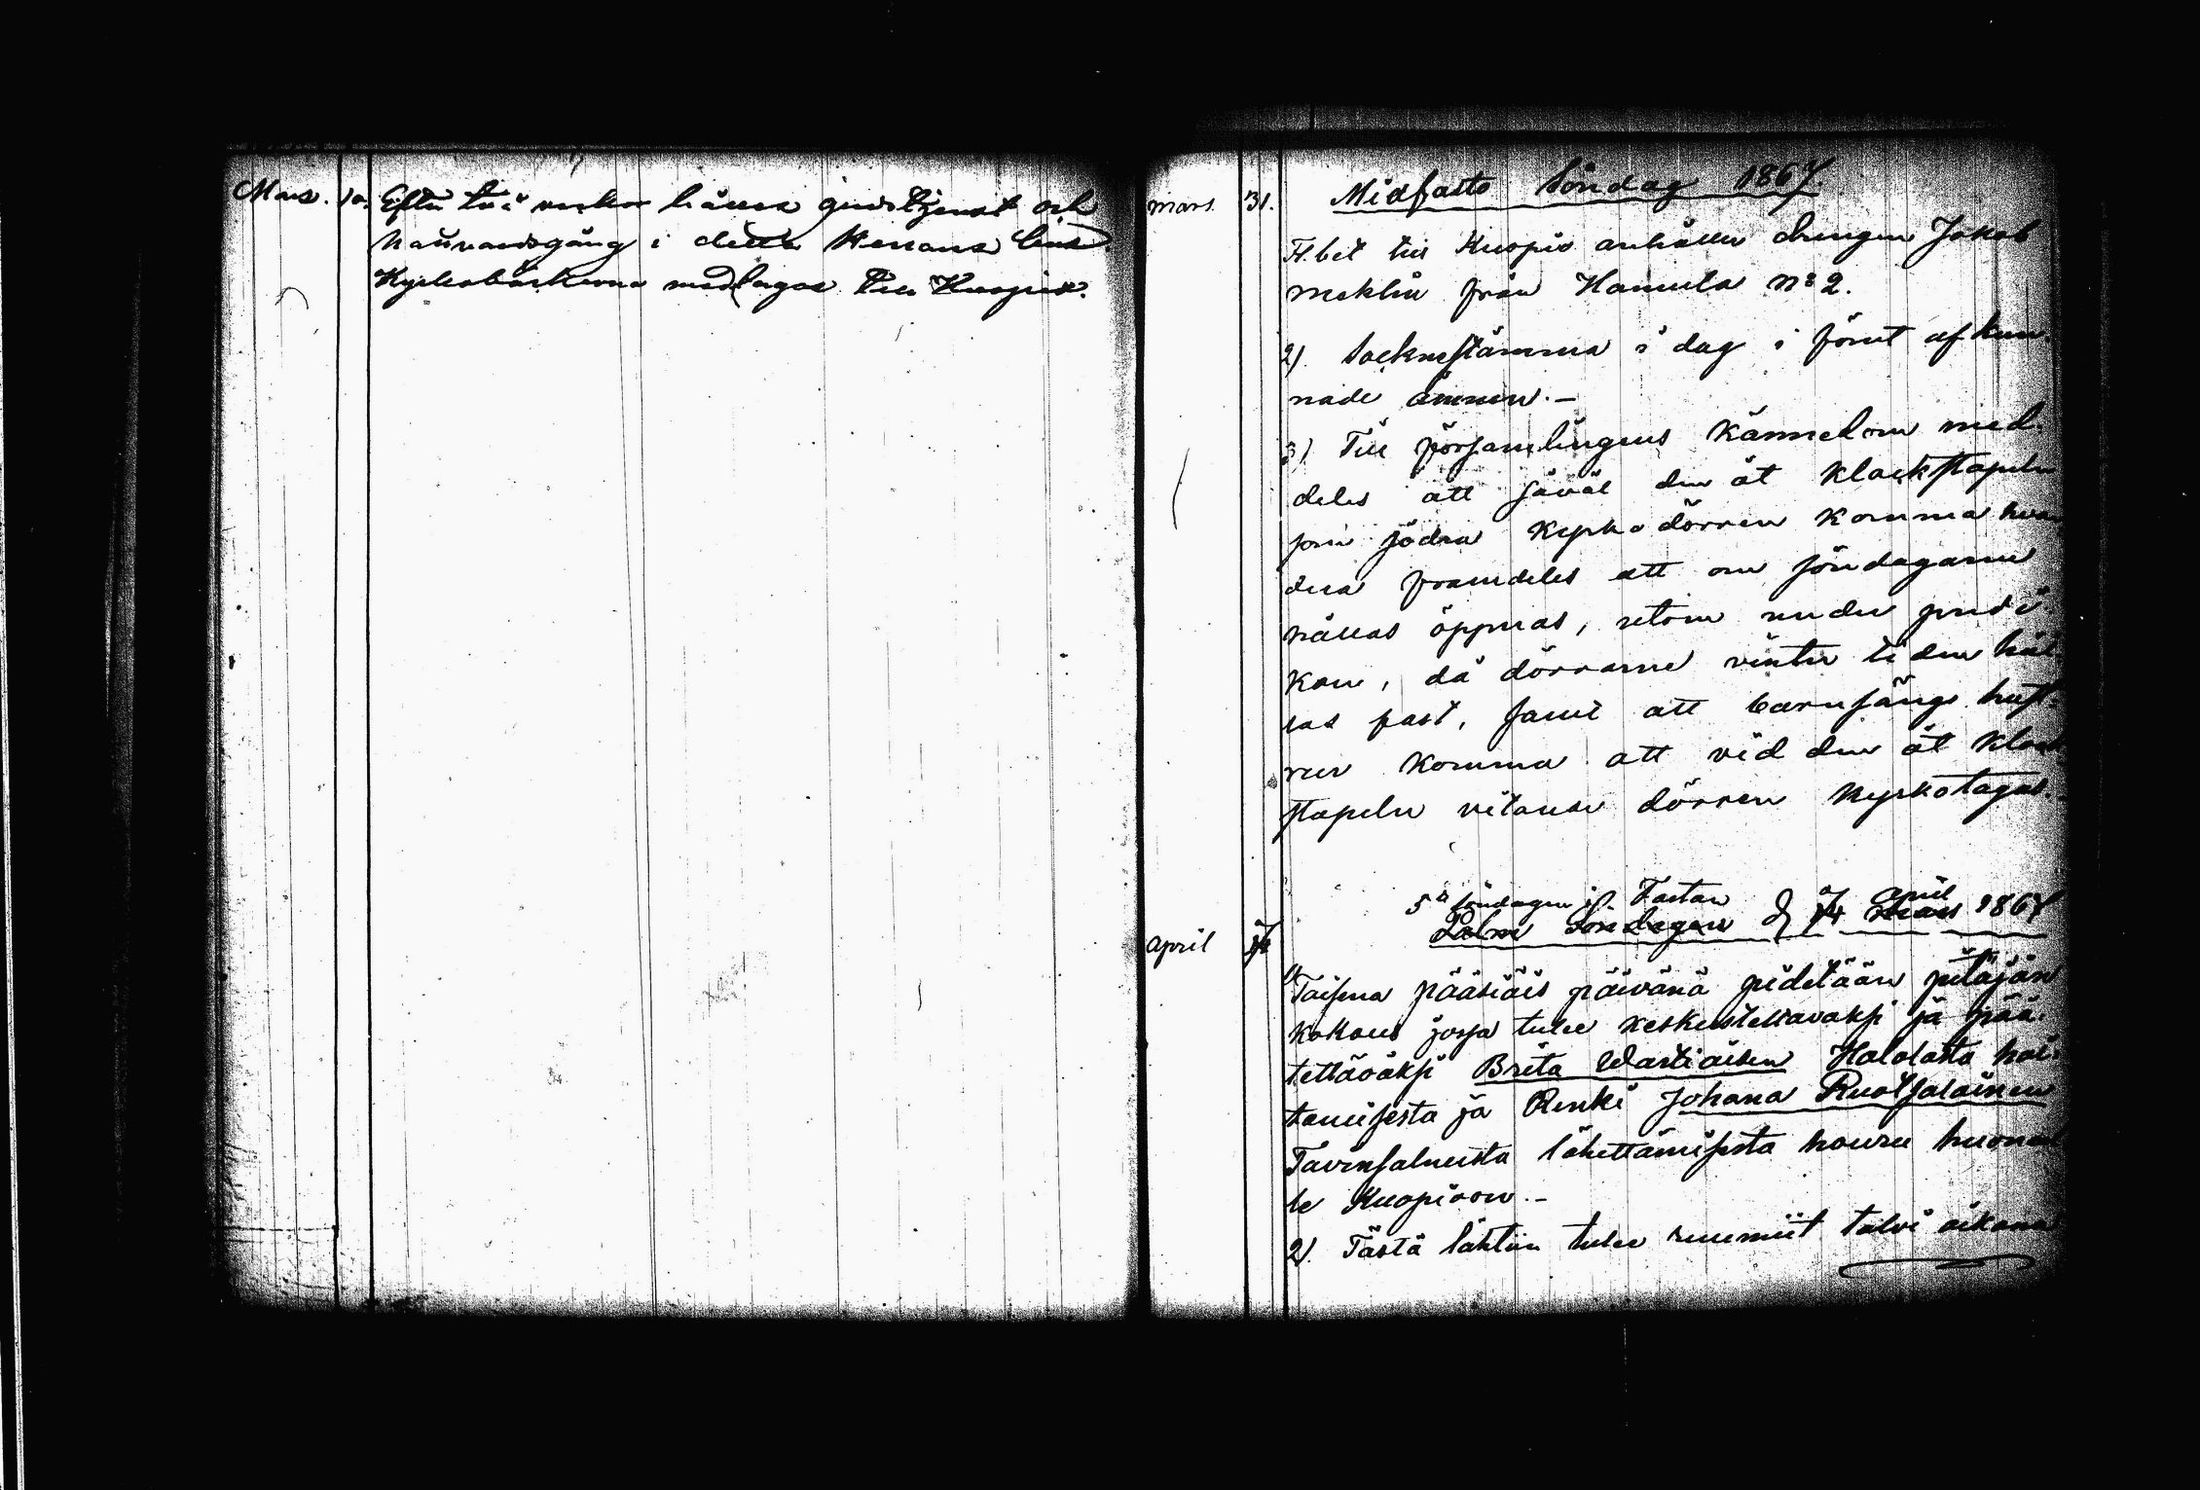 Mars. 10. Efter två veckor hålles gudstjenst och
nattvardsgång i detta Herrans hus.
Kyrkobåckerna medtagas till Kuopio.
mars 31. Midfasto Söndag 1867.
F.bet till Kuopio anhåller drengen Jakob
Meklin från Hamula No 2.
2). Sockenstämma i dag i förut afkun-
nade ämnen.—
3). Till församlingens kännedom med-
deles att såväl den åt klockstapeln
som södra kyrko dörren komma
framdeles att om söndagarne
hållas öppnas, utom under predi-
kan, då dörrarne vinter tiden hål-
las fast, samt att barnsängs hust-
rur komma att vid den åt klock-
stapeln vitande dörren kyrkotagas.
5te söndagen i Fastan april
Palm Söndagen d 7 14 Mars 1867
april 7
1) Toisena pääsiäis päivänä pidetään pitäjän
kokous jossa tulee keskusteltavaksi ja pää-
tettäväksi Brita Wartiaisen Halolasta hoi-
tamisesta ja Renki Johana Ruotsalainen
Tavinsalmesta lähettämisestä houru huonee
le Kuopioon.—
2). Tästä lähtein tulee ruumiit talvi aikana